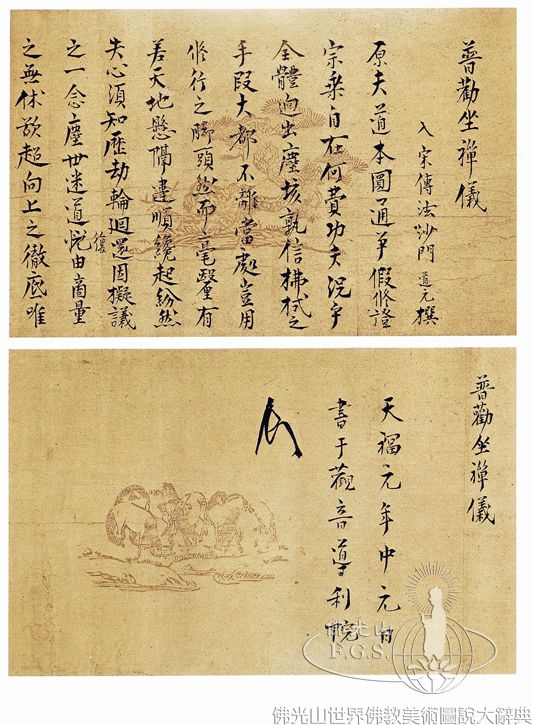 普勸坐禪儀
入宋傳法沙門 道元撰
原夫道本圓通爭假修證
宗乘自在何費功夫況乎
全體逈出塵埃孰信拂拭之
手段大都不離當處豈用
修行之脚頭然而毫釐有
差天地懸隔違順纔起紛然
失心須知歷劫輪迴還因擬議
之一念塵世迷道復由商量
之無休欲超向上之徹底唯
普勸坐禪儀
天福元年中元日
書于觀音導利院
佛光山
F.G.S.
佛光山世界佛教美術圖說大辭典